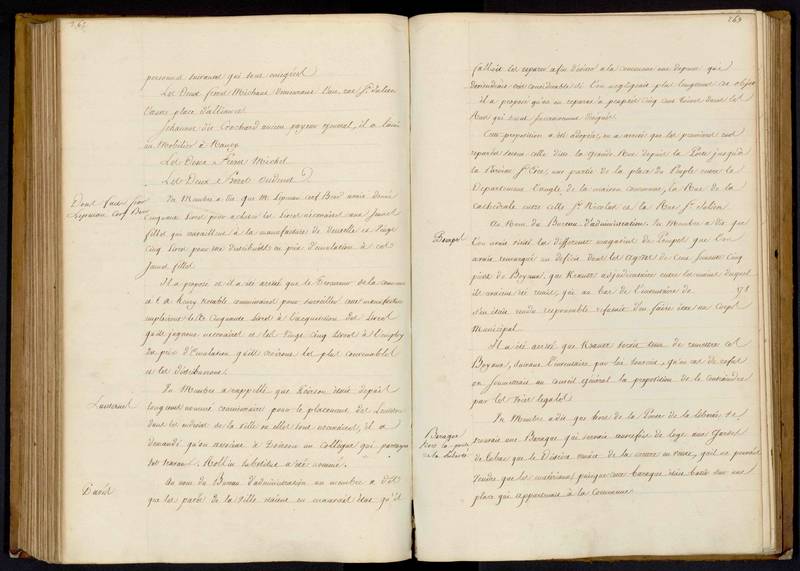 personnes suivantes qui sont émigrés
Les Deux frères Michaux demeurants l'un, rue St Julien
l'autre place d'alliance
ancien payeur général, il a laissé
un Mobilier à Nancy
Les Deux frères Michel
Les Deux frères
Dons faits par
Lipman Cerf Beer
Un Membre a dit que M Lipman cerf Beer avoit donné
Cinquante livres pour acheter les livres nécessaires aux Jeunes
filles qui travaillent à la manufacture de dentelle et Vingt
Cinq livres pour être distribuées en prix d'émulation à ces
Jeunes filles
Il a proposé et il a été arrêté que le Procureur de la commune
et notable commissaires pour surveiller cette manufacture
employeroient les Cinquante livres à l'acquisition des livres
qu'ils jugeront nécessaires et les Vingt Cinq livres à l'employ
du prix d'Emulation qu'ils croiront les plus convenables
et les distribueront
Lanternes
Un Membre a rappellé que Poirson étoit depuis
longtems nommé commissaire pour le placement des Lanternes
dans les endroits de la ville où elles sont nécessaires, il a
demandé qu'on associat à Poirson un Collègue qui partageat
son travail. Rollin substitut a été nommé.
Pavés
Au nom du Bureau d'administration un membre a dit
que les pavés de la Ville étoient en mauvais état qu'il
269
falloit les réparer afin d'éviter à la commune une dépense qui
deviendroit très considérable si l'on négligeait plus longtems cet objet
il a proposé qu'on en reparat à présent cinq cent toises dans les
Rues qui sont
Cette proposition a été adoptée, on a arrêté que les premières rues
réparées seroient celle dite la grande Rue depuis la Porte jusqu'à
la Paroisse une partie de la place du Peuple entre le
Département l'angle de la maison commune, la Rue de la
cathédrale entre celle St Nicolas et la Rue St Julien
Pompes
Au Nom du Bureau d'administration Un Membre a dit que
l'on avoit visité les différents magasins de Pompes que l'on
avoit remarqué un déficit dans les agrets de Cent Soixante Cinq
pieds de Boyaux, que Krantz adjudicataire entre les mains duquel
ils avoient été remis, qui au bas de l'inventaire de 178
s'en étoit rendu responsable refusoit d'en faire état au Corps
Municipal
Il a été arrêté que Krantz seroit tenu de remettre ces
Boyaux, suivant l'inventaire par lui souscrit, qu'en cas de refus
on soumettrait au conseil général la proposition de le contraindre
par les voies légales
Baraque
hors la porte
de la liberté
Un Membre a dit que hors de la Porte de la liberté il se
trouvoit une Baraque qui servoit autrefois de loge aux Gardes
de tabac que le District venoit de la mettre en vente, qu'il ne pouvoit
Vendre que les matériaux puisque cette baraque étoit batie sur une
place qui appartenait à la Commune